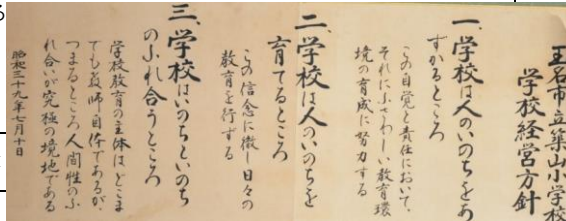 玉名市立築山小学校
学校経営方針
一、学校は人のいのちをあ
ずかるところ
この自覚と責任において、
それにふさわしい教育環
境の育成に努力する
二、学校は人のいのちを
育てるところ
この信念に徹し日々の
教育を行ずる
三、学校はいのちといのち
のふれ合うところ
学校教育の主体はどこま
でも教師自体であるが、
つまるところ人間性のふ
れ合いが究極の境地である
昭和三十九年七月十日